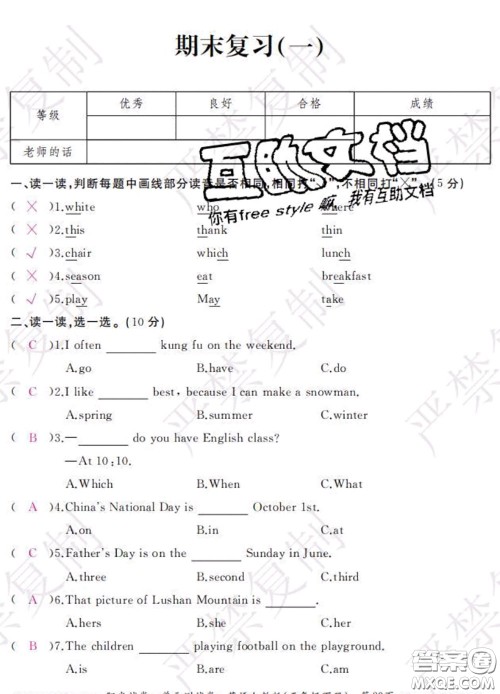 期末复习(一)
等级 优秀 良好 合格 成绩
老师的话
一、读一读,判断每题中画线部分读音是否相同,相同打“√”,不相同打“×”。(5分)
( × )1.white who where
( × )2.this thank thin
( √ )3.chair which lunch
( × )4.season eat breakfast
( √ )5.play May take
二、读一读,选一选。(10分)
( C )1.I often ______ kung fu on the weekend.
A.go B.have C.do
( C )2.I like ______ best, because I can make a snowman.
A.spring B.summer C.winter
( B )3.—______ do you have English class?
—At 10:10.
A.Which B.When C.What
( A )4.China's National Day is ______ October 1st.
A.on B.in C.at
( C )5.Father's Day is on the ______ Sunday in June.
A.three B.second C.third
( A )6.That picture of Lushan Mountain is ______.
A.hers B.she C.her
( B )7.The children ______ playing football on the playground.
A.is B.are C.am
互助文档
你有free style 嘛,我有互助文档
严禁复制
严禁复制
严禁复制
严禁复制